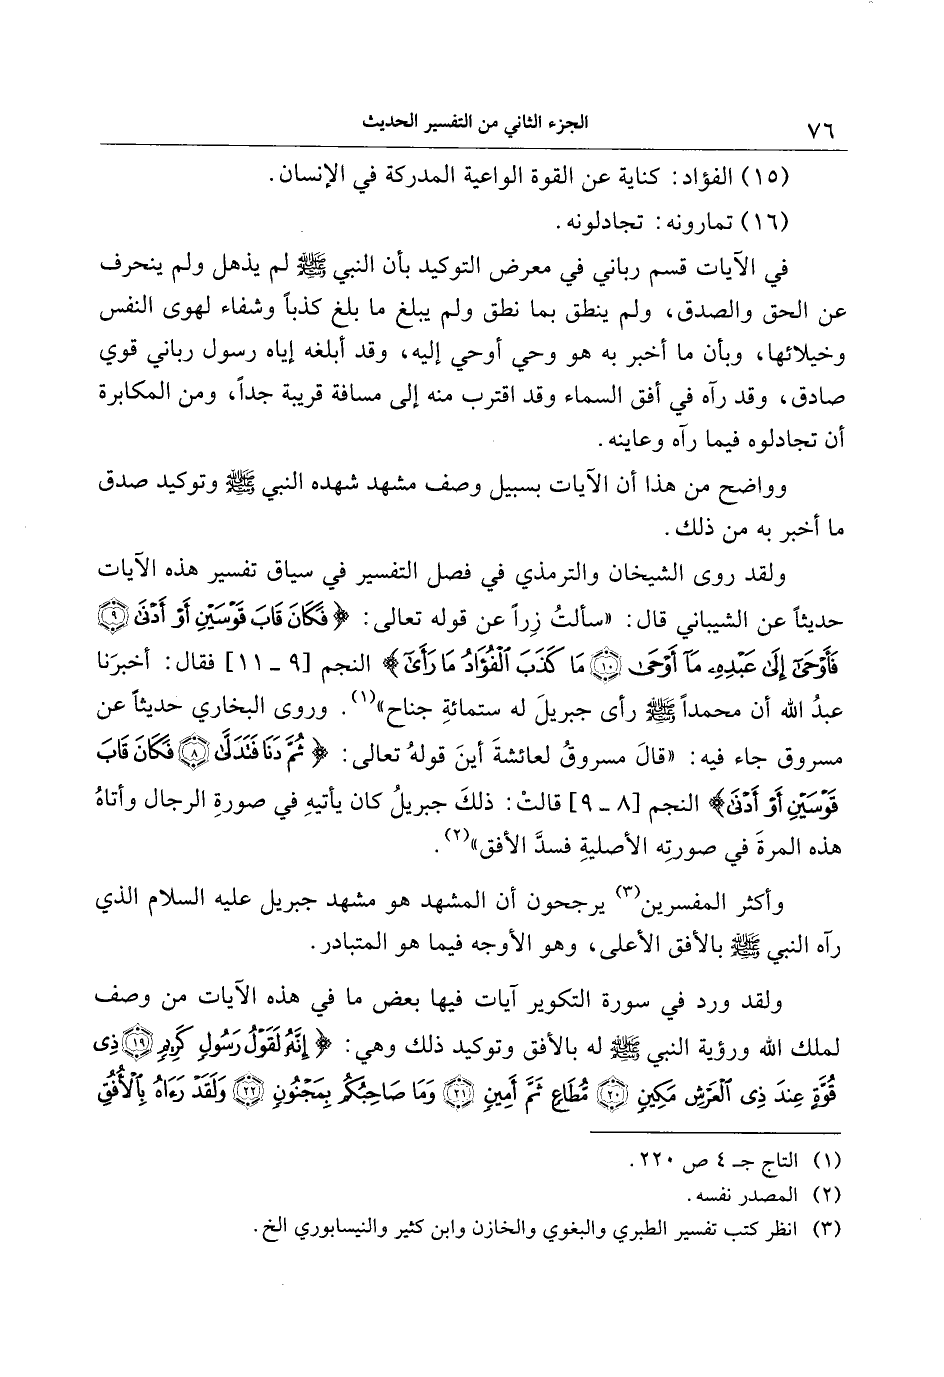 ٧٦
الجزء الثاني من التفسير الحديث
(١٥) الفؤاد: كناية عن القوة الواعية المدركة في الإنسان.
(١٦) تمارونه: تجادلونه.
في الآيات قسم رباني في معرض التوكيد بأن النبي ﷺ لم يذهل ولم ينحرف
عن الحق والصدق، ولم ينطق بما نطق ولم يبلغ ما بلغ كذباً وشفاء لهوى النفس
وخيلائها، وبأن ما أخبر به هو وحي أوحي إليه، وقد أبلغه إياه رسول رباني قوي
صادق، وقد رآه في أفق السماء وقد اقترب منه إلى مسافة قريبة جداً، ومن المكابرة
أن تجادلوه فيما رآه وعاينه.
وواضح من هذا أن الآيات بسبيل وصف مشهد شهده النبي ﷺ وتوكيد صدق
ما أخبر به من ذلك.
ولقد روى الشيخان والترمذي في فصل التفسير في سياق تفسير هذه الآيات
حديثاً عن الشيباني قال: «سألتُ زِراً عن قوله تعالى: ﴿فَكَانَ قَابَ قَوْسَيْنِ أَوْ أَدْنَىٰ ٩
فَأَوْحَىٰ إِلَىٰ عَبْدِهِۦ مَآ أَوْحَىٰ ١٠ مَا كَذَبَ ٱلْفُؤَادُ مَا رَأَىٰٓ﴾ النجم [٩ ـ ١١] فقال: أخبرَنا
عبدُ الله أن محمداً ﷺ رأى جبريلَ له ستمائةِ جناح»(١). وروى البخاري حديثاً عن
مسروق جاء فيه: «قالَ مسروقُ لعائشةَ أينَ قولهُ تعالى: ﴿ثُمَّ دَنَا فَتَدَلَّىٰ ٨ فَكَانَ قَابَ
قَوْسَيْنِ أَوْ أَدْنَىٰ﴾ النجم [٨ ـ ٩] قالتْ: ذلكَ جبريلُ كان يأتيهِ في صورةِ الرجال وأتاهُ
هذه المرةَ في صورتِه الأصليةِ فسدَّ الأفق»(٢).
وأكثر المفسرين(٣) يرجحون أن المشهد هو مشهد جبريل عليه السلام الذي
رآه النبي ﷺ بالأفق الأعلى، وهو الأوجه فيما هو المتبادر.
ولقد ورد في سورة التكوير آيات فيها بعض ما في هذه الآيات من وصف
لملك الله ورؤية النبي ﷺ له بالأفق وتوكيد ذلك وهي: ﴿إِنَّهُۥ لَقَوْلُ رَسُولٍ كَرِيمٍ ١٩ ذِى
قُوَّةٍ عِندَ ذِى ٱلْعَرْشِ مَكِينٍ ٢٠ مُّطَاعٍ ثَمَّ أَمِينٍ ٢١ وَمَا صَاحِبُكُم بِمَجْنُونٍ ٢٢ وَلَقَدْ رَءَاهُ بِٱلْأُفُقِ
(١) التاج جـ ٤ ص ٢٢٠.
(٢) المصدر نفسه.
(٣) انظر كتب تفسير الطبري والبغوي والخازن وابن كثير والنيسابوري الخ.